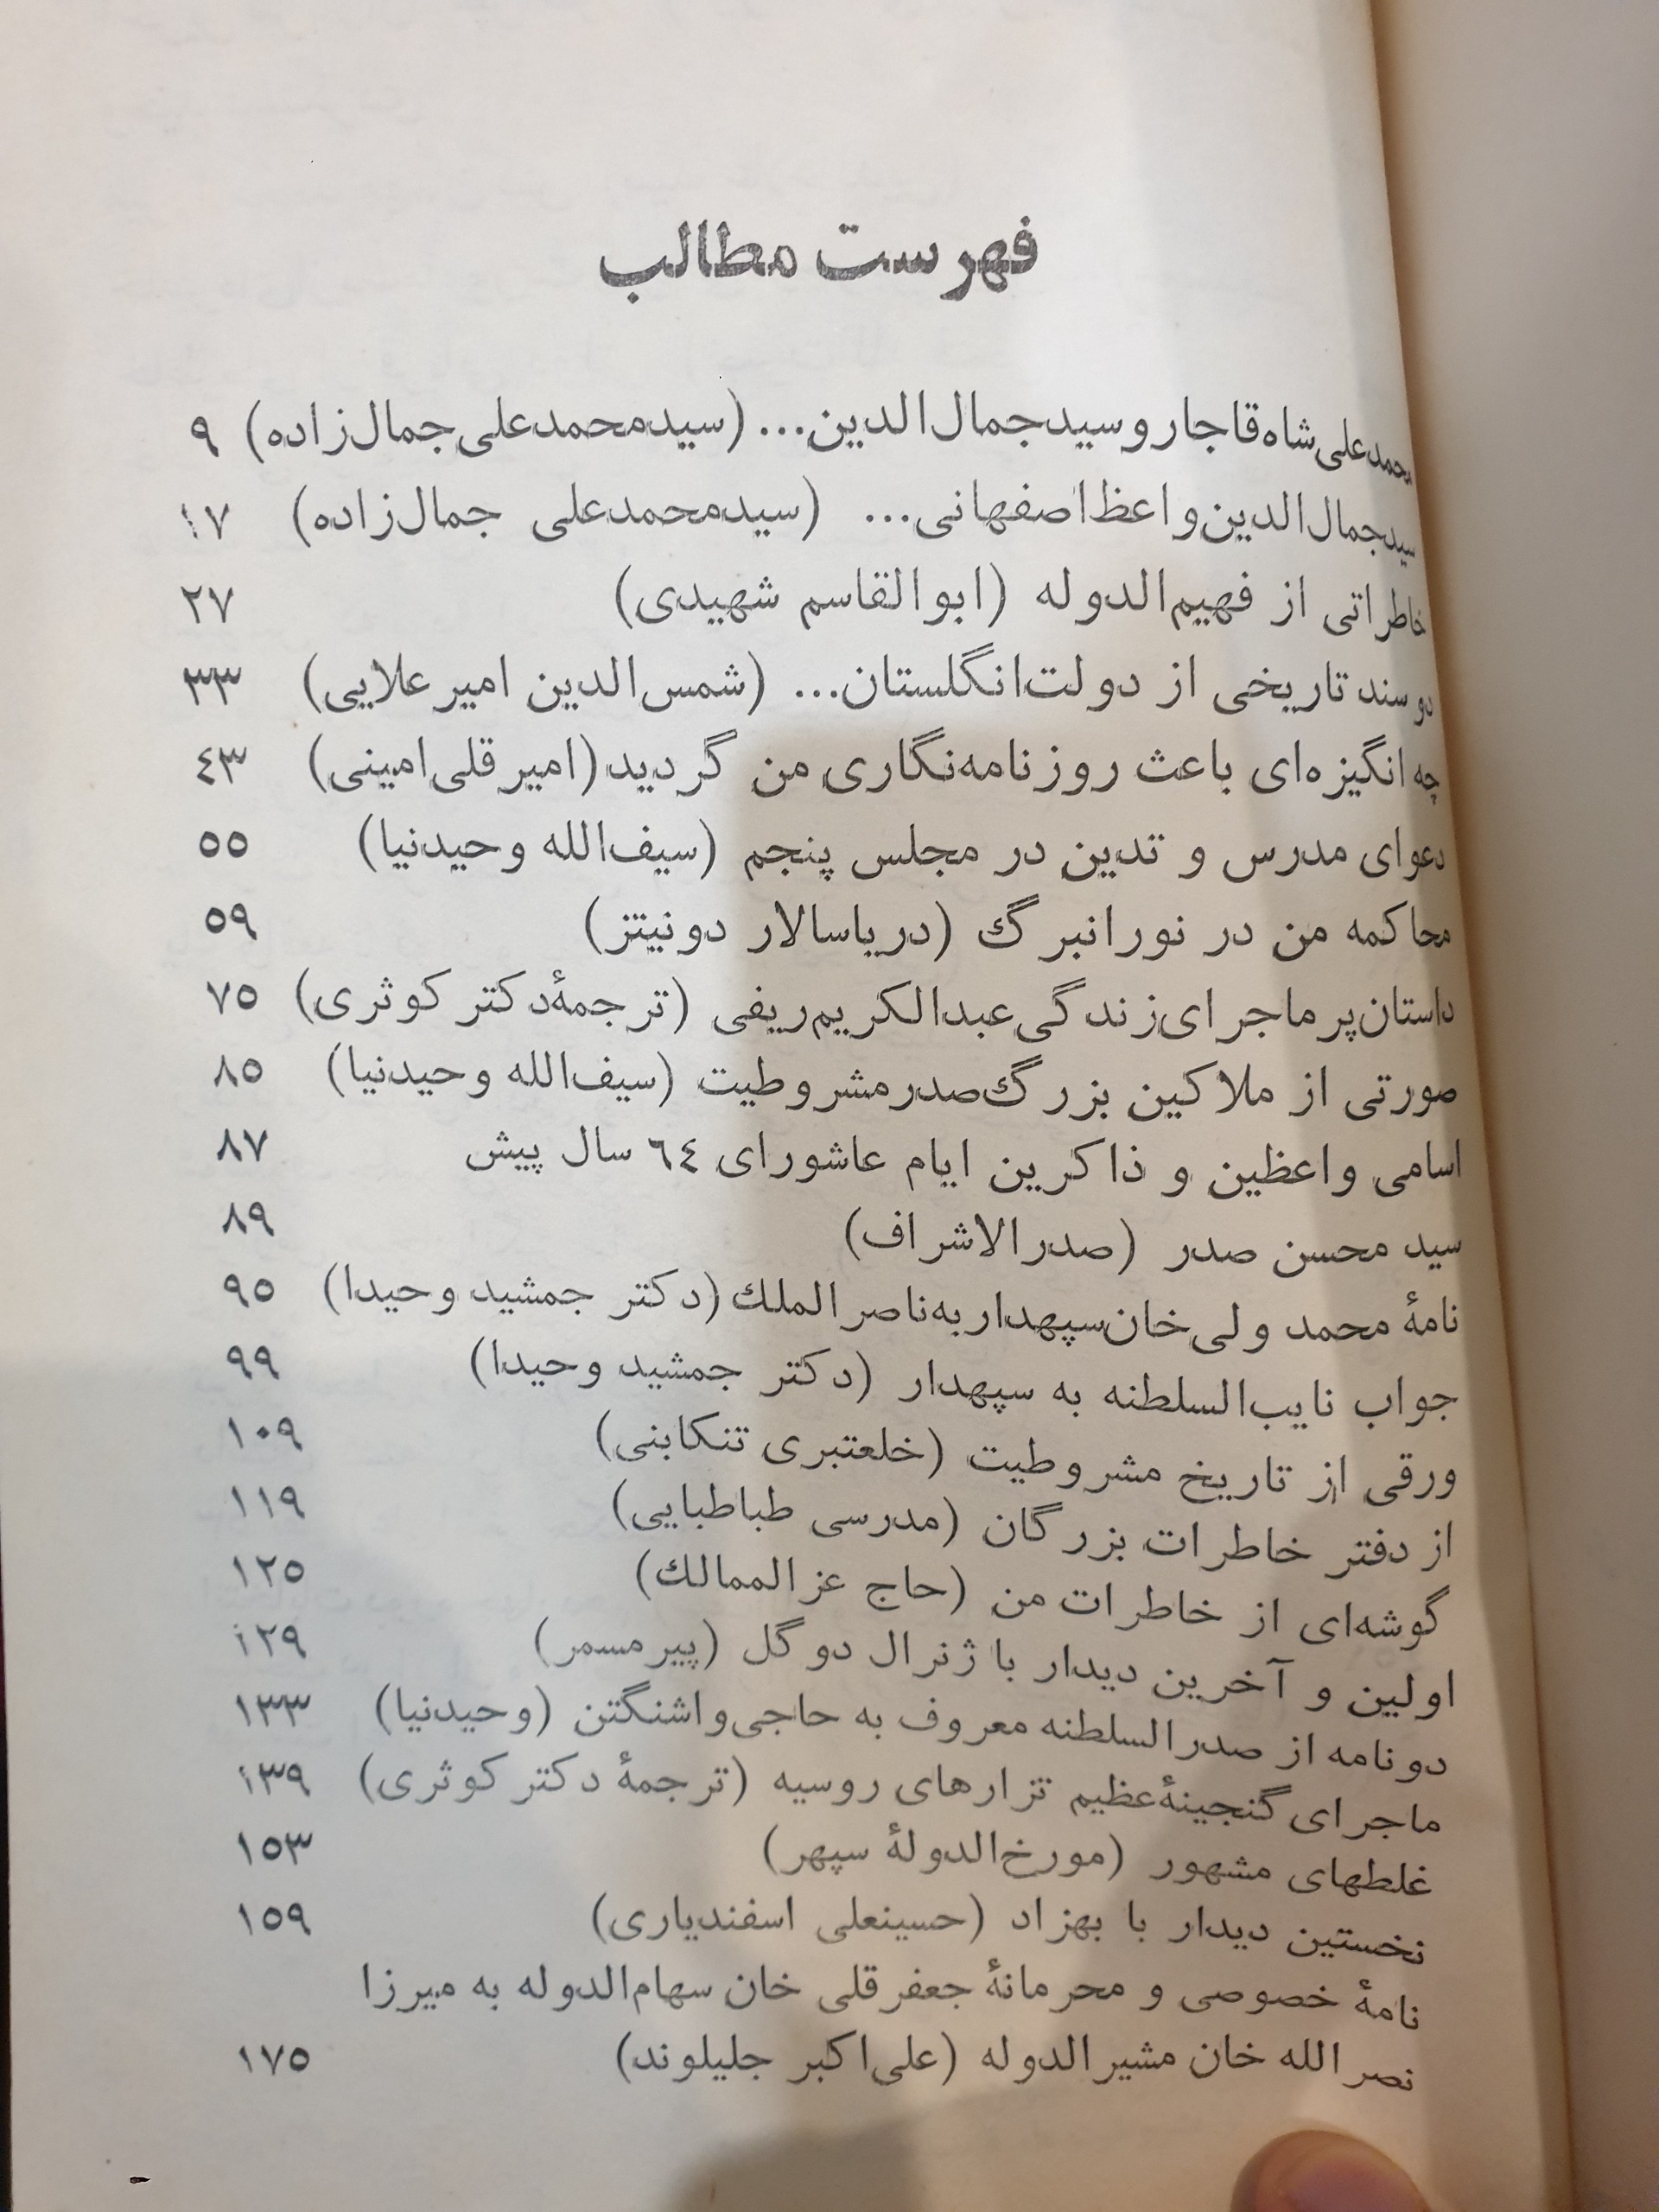 فهرست مطالب
محمدعلی‌شاه قاجار و سیدجمال‌الدین... (سیدمحمدعلی جمال‌زاده) ۹
سیدجمال‌الدین واعظ اصفهانی... (سیدمحمدعلی جمال‌زاده) ۱۷
خاطراتی از فهیم‌الدوله (ابوالقاسم شهیدی) ۲۷
دو سند تاریخی از دولت انگلستان... (شمس‌الدین امیرعلایی) ۳۳
چه انگیزه‌ای باعث روزنامه‌نگاری من گردید (امیرقلی امینی) ۴۳
دعوای مدرس و تدین در مجلس پنجم (سیف‌الله وحیدنیا) ۵۵
محاکمه من در نورانبرگ (دریاسالار دونیتز) ۵۹
داستان پرماجرای زندگی عبدالکریم ریفی (ترجمهٔ دکتر کوثری) ۷۵
صورتی از ملاکین بزرگ صدر مشروطیت (سیف‌الله وحیدنیا) ۸۵
اسامی واعظین و ذاکرین ایام عاشورای ۶۴ سال پیش ۸۷
سید محسن صدر (صدرالاشراف) ۸۹
نامهٔ محمد ولی‌خان سپهدار به ناصرالملك (دکتر جمشید وحیدا) ۹۵
جواب نایب‌السلطنه به سپهدار (دکتر جمشید وحیدا) ۹۹
ورقی از تاریخ مشروطیت (خلعتبری تنکابنی) ۱۰۹
از دفتر خاطرات بزرگان (مدرسی طباطبایی) ۱۱۹
گوشه‌ای از خاطرات من (حاج عزالممالك) ۱۲۵
اولین و آخرین دیدار با ژنرال دوگل (پیرمسمر) ۱۲۹
دو نامه از صدرالسلطنه معروف به حاجی واشنگتن (وحیدنیا) ۱۳۳
ماجرای گنجینهٔ عظیم تزارهای روسیه (ترجمهٔ دکتر کوثری) ۱۳۹
غلطهای مشهور (مورخ‌الدولهٔ سپهر) ۱۵۳
نخستین دیدار با بهزاد (حسینعلی اسفندیاری) ۱۵۹
نامهٔ خصوصی و محرمانهٔ جعفرقلی خان سهام‌الدوله به میرزا
نصرالله خان مشیرالدوله (علی‌اکبر جلیلوند) ۱۷۵